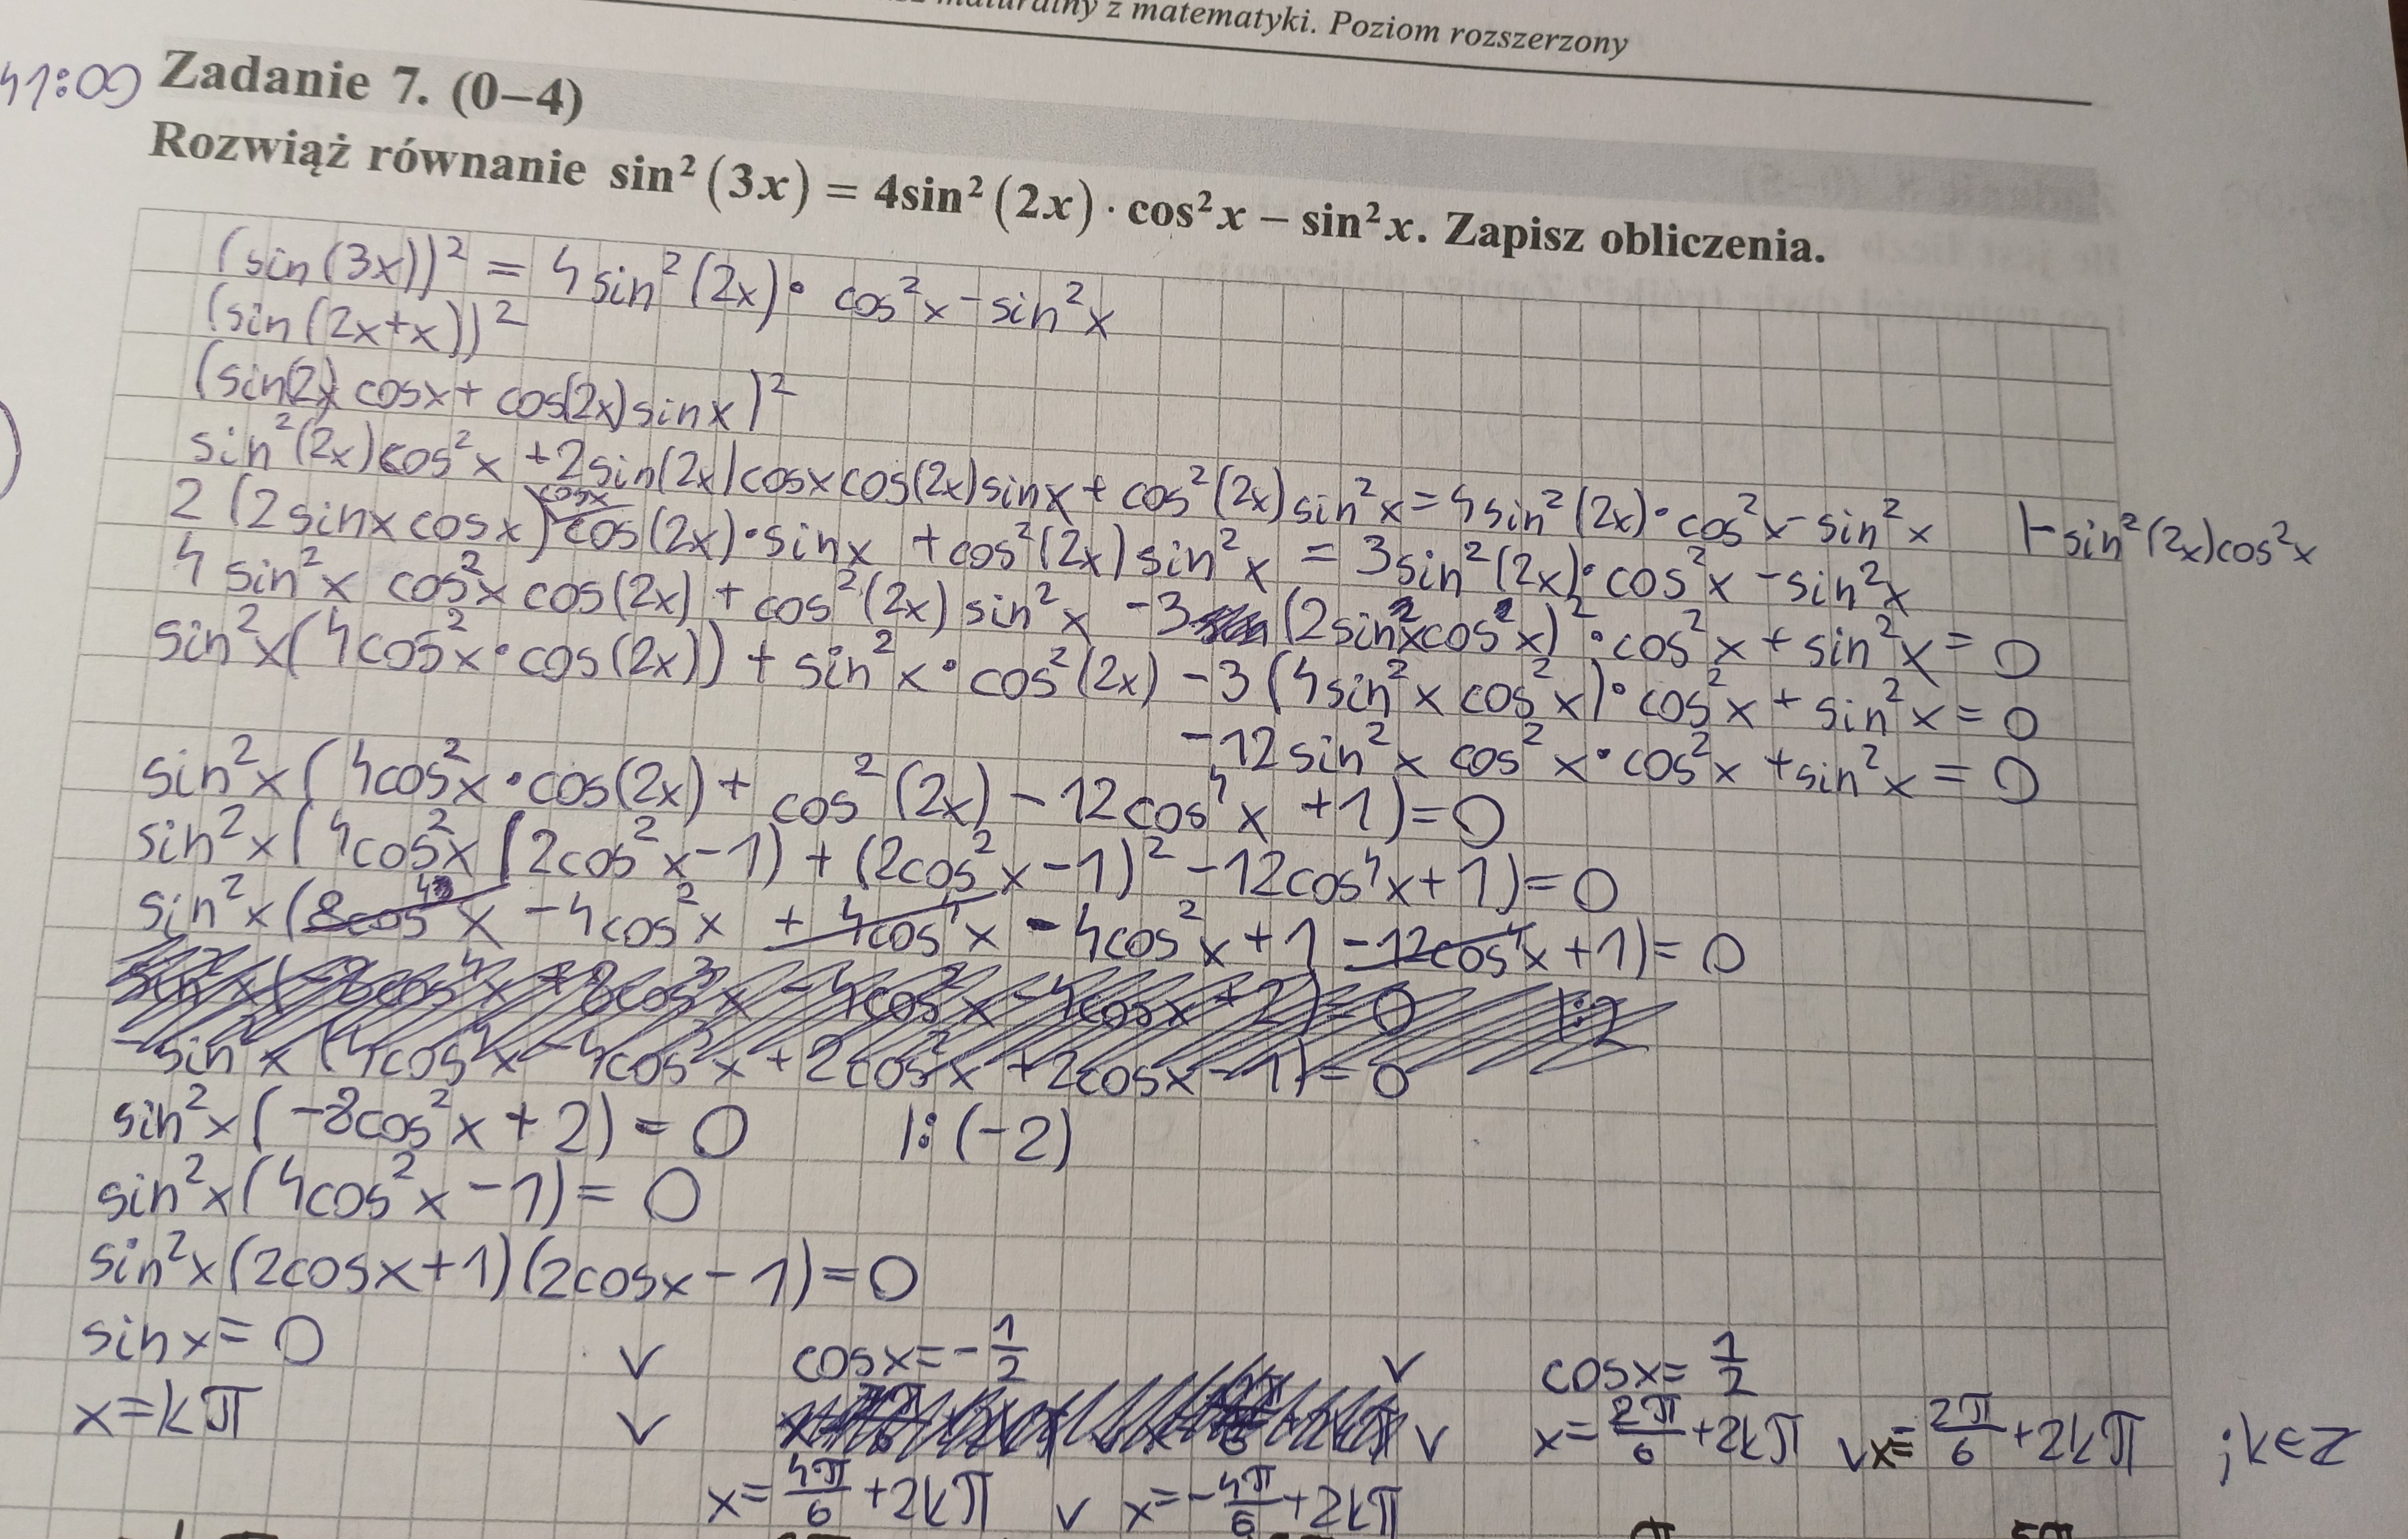 maturalny z matematyki. Poziom rozszerzony
41:09 Zadanie 7. (0–4)
Rozwiąż równanie sin² (3x) = 4sin² (2x) · cos² x – sin² x. Zapisz obliczenia.
(sin(3x))² = 4sin²(2x)· cos²x - sin²x
(sin(2x+x))²
(sin(2x) cosx + cos(2x)sinx)²
sin²(2x)cos²x + 2sin(2x)cosxcos(2x)sinx + cos²(2x)sin²x = 4sin²(2x)·cos²x - sin²x |-sin²(2x)cos²x
2 (2sinxcosx)cosx cos(2x)·sinx + cos²(2x)sin²x = 3sin²(2x)·cos²x - sin²x
4 sin²x cos²x cos(2x) + cos²(2x) sin²x - 3 (2sin²xcos²x)²·cos²x + sin²x = 0
sin²x(4cos²x·cos(2x)) + sin²x·cos²(2x) - 3(4sin²x cos²x)·cos²x + sin²x = 0
-12sin²x cos²x·cos²x + sin²x = 0
sin²x(4cos²x·cos(2x) + cos²(2x) - 12cos⁴x + 1) = 0
sin²x(4cos²x(2cos²x-1) + (2cos²x-1)² - 12cos⁴x + 1) = 0
sin²x(8cos⁴x - 4cos²x + 4cos⁴x - 4cos²x + 1 - 12cos⁴x + 1) = 0
sin²x(-8cos⁴x + 8cos³x - 4cos²x - 4cosx + 2) = 0 |:2
-sin²x(4cos⁴x - 4cos³x + 2cos²x + 2cosx - 1) = 0
sin²x(-8cos²x + 2) = 0 |:(-2)
sin²x(4cos²x - 1) = 0
sin²x(2cosx+1)(2cosx-1) = 0
sinx = 0 v cosx = -1/2 v cosx = 1/2
x = kπ v v x = 2π/6 + 2kπ v x = 2π/6 + 2kπ ; k∈Z
x = 4π/6 + 2kπ v x = -4π/6 + 2kπ